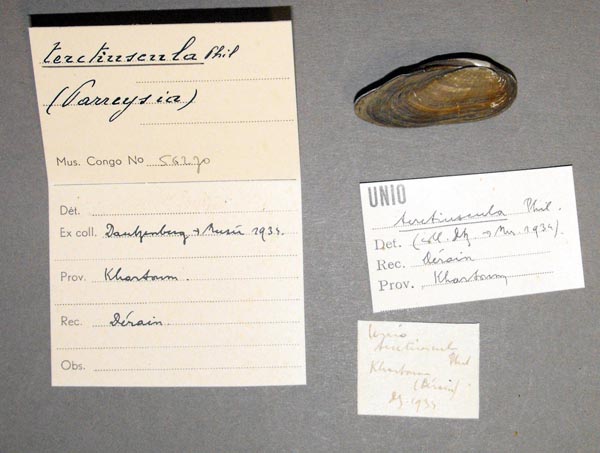 teretiuscula Phil
(Parreysia)
Mus. Congo No 56270
Dét.
Ex coll. Dautzenberg → Musée 1934.
Prov. Khartoum.
Rec. Dérain.
Obs.
UNIO
teretiuscula Phil.
Det. (coll. Dtz. → Mus. 1934).
Rec. Dérain
Prov. Khartoum
Unio
teretiuscula
Phil
Khartoum
(Dérain)
Dtz. 1934